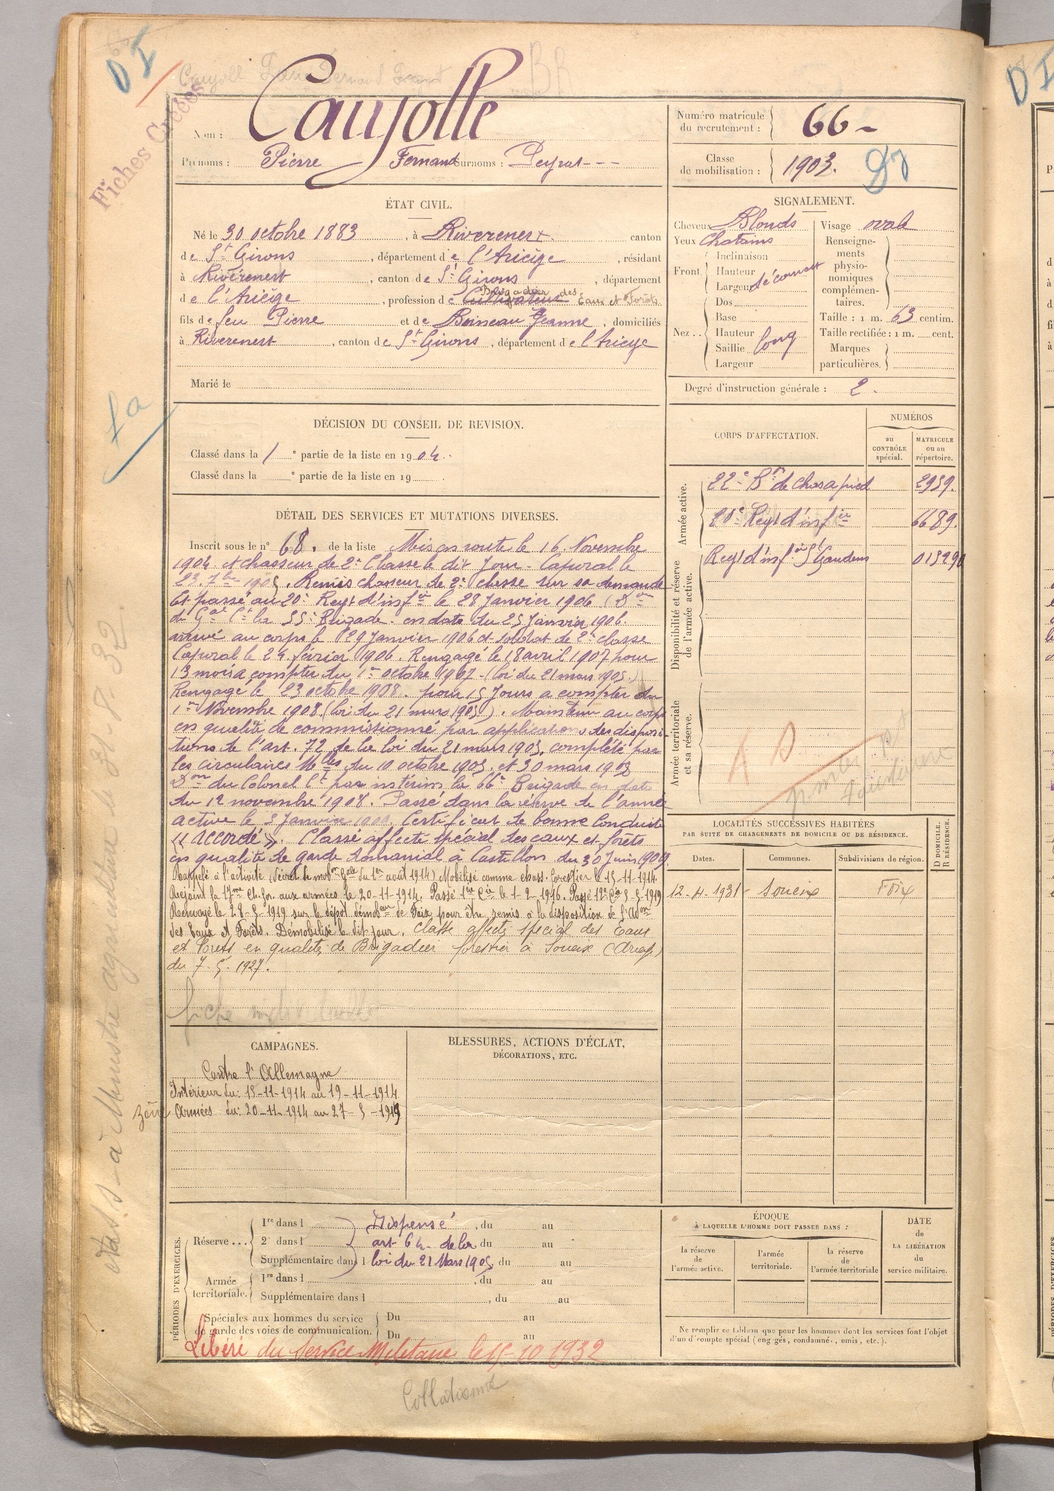 DI
Fiches Créées
BR
Nom : Caujolle
Prénoms : Pierre Fernand Surnoms : Peyrat ---
Numéro matricule du recrutement : 66 -
Classe de mobilisation : 1903.
ÉTAT CIVIL.
Né le 30 octobre 1883, à Rivèrenert canton
de St Girons, département de l'Ariège, résidant
à Rivèrenert, canton de St Girons, département
de l'Ariège, profession de Cultivateur Brigadier des Eaux et Forêts
fils de feu Pierre et de Boineau Jeanne, domiciliés
à Rivèrenert, canton de St Girons, département de l'Ariège
Marié le
SIGNALEMENT.
Cheveux Blonds
Yeux Chatains
Front Inclinaison
Hauteur
Largeur découvert
Nez .. Dos
Base
Hauteur
Saillie long
Largeur
Visage oval
Renseignements physionomiques complémentaires.
Taille : 1 m. 63 centim.
Taille rectifiée : 1 m. cent.
Marques particulières.
Degré d'instruction générale : 2.
DÉCISION DU CONSEIL DE REVISION.
Classé dans la 1e partie de la liste en 1904.
Classé dans la e partie de la liste en 19
CORPS D'AFFECTATION.
NUMÉROS
au CONTRÔLE spécial.
MATRICULE ou au répertoire.
Armée active.
22e Bon de chas à pied 2939.
20e Regt d'infie 6689.
Disponibilité et réserve de l'armée active.
Regt d'infie St Gaudens
Armée territoriale et sa réserve.
DÉTAIL DES SERVICES ET MUTATIONS DIVERSES.
Inscrit sous le n° 68. de la liste Mis en route le 16 Novembre
1904 et chasseur de 2e Classe le dit jour - Caporal le
22 7bre 1905. Remis chasseur de 2e classe sur sa demande
Et passé au 20e Regt d'infie le 28 Janvier 1906 (Don
du Gal Ct la 55e Brigade en date du 25 Janvier 1906
arrivé au corps le 29 Janvier 1906 et soldat de 2e classe
Caporal le 24 février 1906. Rengagé le 18 avril 1907 pour
13 mois à compter du 1er octobre 1907 (loi du 21 mars 1905)
Rengagé le 23 octobre 1908 pour 15 Jours à compter du
1er Novembre 1908 (loi du 21 mars 1905). Maintenu au corps
en qualité de commissionné par application des disposi-
tions de l'art. 72 de la loi du 21 mars 1905, complété par
les circulaires Mlles du 10 octobre 1905 et 30 mars
Don du Colonel Ct par intérim la 66e Brigade en date
du 12 novembre 1908. Passé dans la réserve de l'armée
active le 3 Janvier 1909 Certificat de bonne Conduite
« accordé ». Classé affecté spécial des eaux et forêts
en qualité de garde domanial à Castillon du 30 Juin 1909
Rappelé à l'activité (Décret de mobon Gale du 1er août 1914) Mobilisé comme chass. forestier le 15-11-1914
Rejoint la 17me Cie for. aux armées le 20-11-1914. Passé 1re Cie le 1-2-1916.
Renvoyé le 28-5-1919 sur le dépôt démobeur de Foix pour être remis à la disposition de l'Adon
des Eaux et Forêts. Démobilisé le dit jour. Classé affecté spécial des Eaux
et Forêts en qualité de Brigadier forestier à Soueix (Ariège)
du 7-5-1927.
fiche individuelle
LOCALITÉS SUCCESSIVES HABITÉES
PAR SUITE DE CHANGEMENTS DE DOMICILE OU DE RÉSIDENCE.
Dates. Communes. Subdivisions de région. D DOMICILE. R RÉSIDENCE.
12-4-1931 Soueix Foix
CAMPAGNES.
Contre l'Allemagne
Intérieur du : 15-11-1914 au 19-11-1914
Armées du : 20-11-1914 au 27-5-1919
BLESSURES, ACTIONS D'ÉCLAT,
DÉCORATIONS, ETC.
PÉRIODES D'EXERCICES.
Réserve ... 1re dans l Dispensé, du au
2e dans l art 64 de la, du au
Supplémentaire dans l loi du 21 Mars 1905 du au
Armée territoriale. 1re dans l, du au
Supplémentaire dans l, du au
Spéciales aux hommes du service de garde des voies de communication. Du au
Du au
Libéré du Service Militaire le 15-10-1932
Collationné
ÉPOQUE
À LAQUELLE L'HOMME DOIT PASSER DANS :
la réserve de l'armée active.
l'armée territoriale.
la réserve de l'armée territoriale
DATE de LA LIBÉRATION du service militaire.
Ne remplir ce tableau que pour les hommes dont les services font l'objet
d'un décompte spécial (engagés, condamnés, omis, etc.).